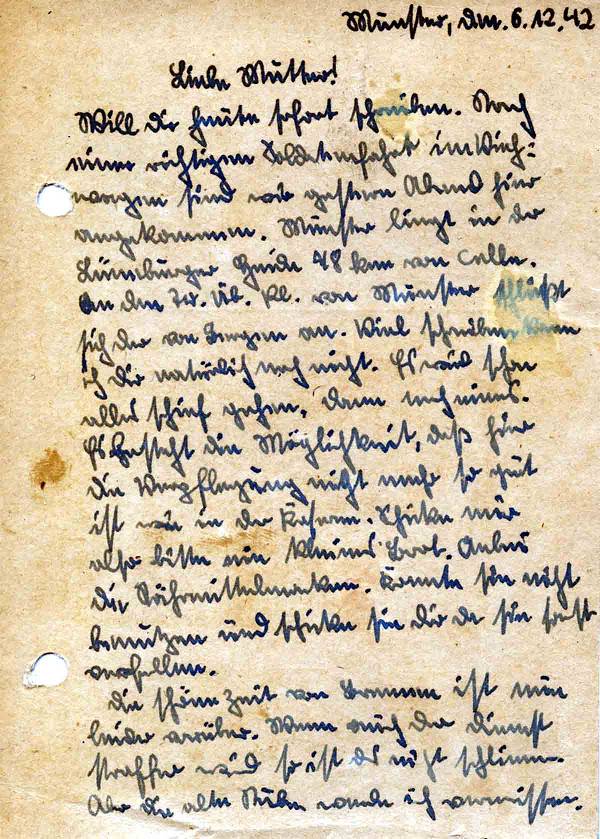 Münster, dm. 6.12.42
Liebe Mutter!
Will dir heute sofort schreiben. Nach
einer richtigen Soldatenfahrt im Vieh-
wagen sind wir gestern Abend hier
angekommen. Münster liegt in der
Lüneburger Heide 48 km von Celle.
An den Tr. Üb. Pl. von Münster schließt
sich der von Bergen an. Viel schreiben kann
ich dir natürlich noch nicht. Es wird schon
alles schief gehen, denn
Es besteht die Möglichkeit, daß hier
die Verpflegung nicht mehr so gut
ist wie in der Kaserne. Schicke mir
also bitte ein kleines Brot. Anbei
die Nährmittelmarken. Konnte sie nicht
benutzen und schicke sie dir da sie sonst
verfallen.
Die schöne Zeit von Bremen ist nun
leider vorüber. Wenn auch der Dienst
straffer wird so ist es nicht schlimm.
Aber die alte Stube werde ich vermissen.